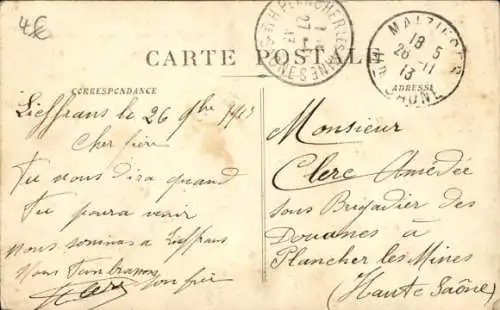 4€
H PLANCHER LES MINES
27
CARTE POSTALE
MALZIEVER
18 5
26-11
13
Hte SAONE
CORRESPONDANCE
ADRESSE
Lieffrans le 26 9bre 1913
Cher frère
Tu nous dira quand
Tu poura venir
Nous sommes a Lieffrans
Nous T'embrassons
ton frère
Clerc
Monsieur
Clerc Amédée
sous Brigadier des
Douanes à
Plancher les Mines
(Haute Saône)